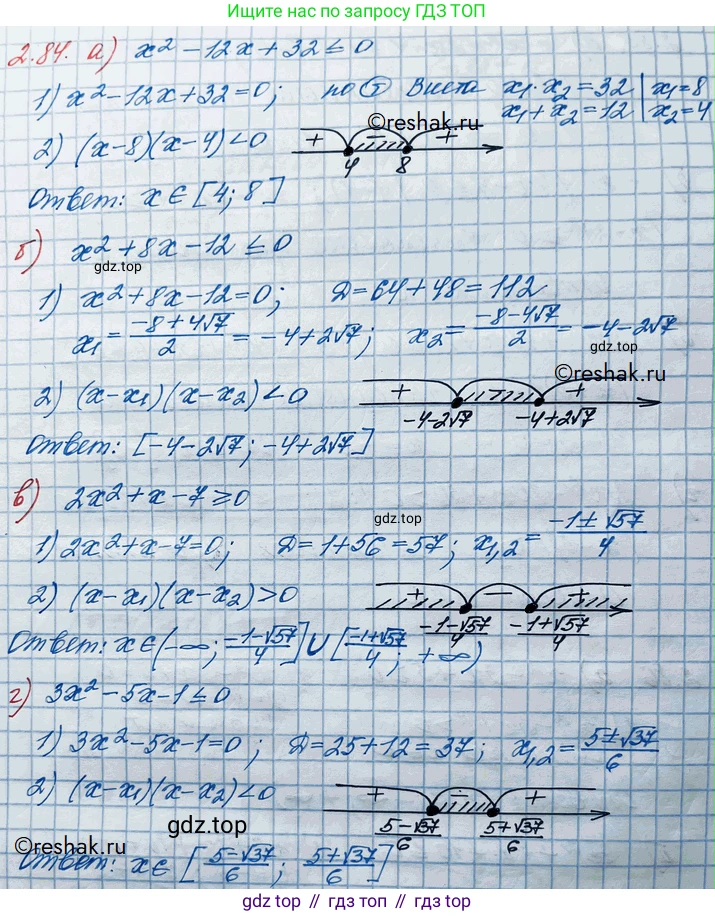 Ищите нас по запросу ГДЗ ТОП
2.84. а) x² - 12x + 32 ≤ 0
1) x² - 12x + 32 = 0; по Т Виета x₁ · x₂ = 32 | x₁ = 8
x₁ + x₂ = 12 | x₂ = 4
©reshak.ru
2) (x-8)(x-4) < 0 + − + 4 8
Ответ: x ∈ [4; 8]
б) x² + 8x - 12 ≤ 0
gdz.top
1) x² + 8x - 12 = 0; D = 64 + 48 = 112
x₁ = (-8 + 4√7)/2 = -4 + 2√7; x₂ = (-8 - 4√7)/2 = -4 - 2√7
gdz.top
©reshak.ru
2) (x - x₁)(x - x₂) < 0 + − + -4-2√7 -4+2√7
Ответ: [-4 - 2√7; -4 + 2√7]
в) 2x² + x - 7 ≥ 0
gdz.top
1) 2x² + x - 7 = 0; D = 1 + 56 = 57; x₁,₂ = (-1 ± √57)/4
2) (x - x₁)(x - x₂) > 0 + − + (-1-√57)/4 (-1+√57)/4
Ответ: x ∈ (-∞; (-1-√57)/4] ∪ [(-1+√57)/4; +∞)
г) 3x² - 5x - 1 ≤ 0
1) 3x² - 5x - 1 = 0; D = 25 + 12 = 37; x₁,₂ = (5 ± √37)/6
2) (x - x₁)(x - x₂) < 0 + − + (5-√37)/6 (5+√37)/6
gdz.top
©reshak.ru
©reshak.ru
Ответ: x ∈ [(5-√37)/6; (5+√37)/6]
gdz top // гдз топ // gdz.top // gdz.top